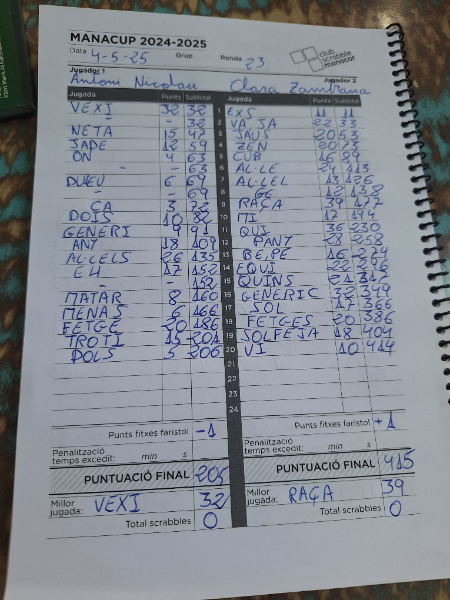 MANACUP 2024-2025
Data 4-5-25 Grup Ronda 23
club scrabble manacor
Jugador 1 Jugador 2
Antoni Nicolau Clara Zambrana
Jugada Punts Subtotal Jugada Punts Subtotal
VEXI 32 32 1 EXS 11 11
- - 32 2 VAJA 22 33
NETA 15 47 3 JAUS 20 53
JADE 12 59 4 ZEN 20 73
ON 4 63 5 CUB 16 89
- - 63 6 AL·LE 24 113
DUEU 6 69 7 AL·LEL 13 126
- - 69 8 GE 12 138
CA 3 72 9 RAÇA 39 177
DOIS 10 82 10 MI 17 194
GENERI 9 91 11 QUI 36 230
ANY 18 109 12 PANY 28 258
AL·LELS 26 135 13 BE,PE 16 274
EH 17 152 14 EQUI 22 296
- - 152 15 QUINS 21 317
MATAR 8 160 16 GENERIC 32 349
MENAS 6 166 17 SOL 17 366
FETGE 20 186 18 FETGES 20 386
TROTI 15 201 19 SOLFEJA 18 404
POLS 5 206 20 VI 10 414
21
22
23
24
Punts fitxes faristol -1 Punts fitxes faristol +1
Penalització temps excedit: min s Penalització temps excedit: min s
PUNTUACIÓ FINAL 205 PUNTUACIÓ FINAL 415
Millor jugada: VEXI 32 Millor jugada: RAÇA 39
Total scrabbles 0 Total scrabbles 0